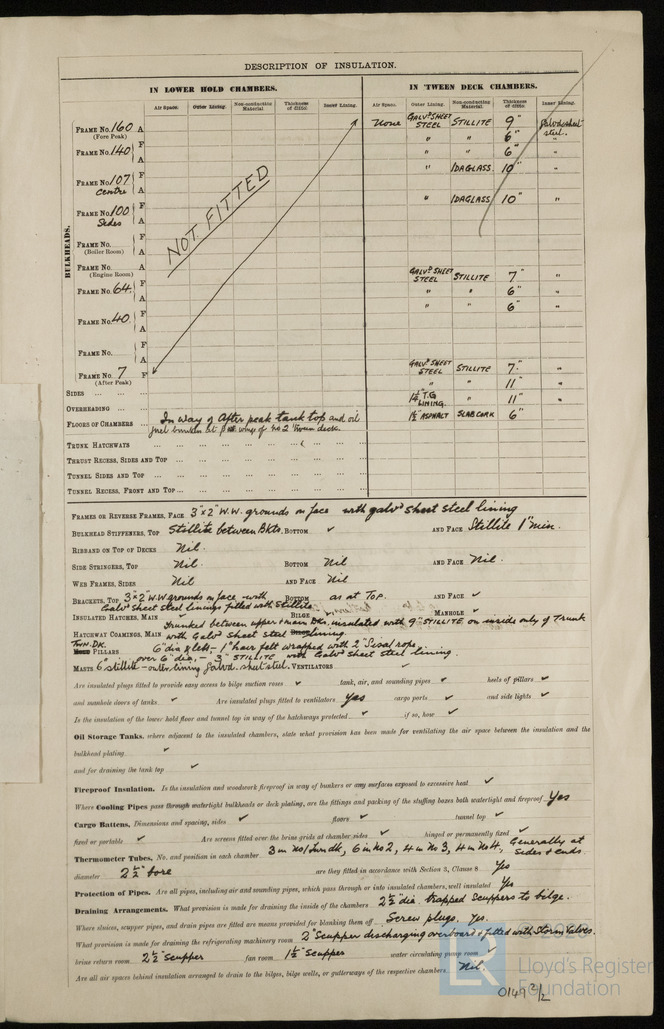 DESCRIPTION OF INSULATION.
IN LOWER HOLD CHAMBERS. IN 'TWEEN DECK CHAMBERS.
Air Space. Outer Lining. Non-conducting Material Thickness of ditto. Inner Lining. Air Space. Outer Lining. Non-conducting Material. Thickness of ditto. Inner Lining.
BULKHEADS.
FRAME NO. 160 A None GALVD SHEET STEEL STILLITE 9" Galvd sheet steel.
(Fore Peak) " " 6" "
FRAME NO. 140 F A " " 6" "
FRAME NO. 107 F " IDAGLASS 10" "
Centre A
FRAME NO. 100 F " IDAGLASS 10" "
Sides A
NOT FITTED
FRAME NO. F
(Boiler Room)
FRAME NO. A GALVD SHEET STEEL STILLITE 7" "
(Engine Room)
FRAME NO. 64 F A " " 6" "
FRAME NO. 40 F A " " 6" "
FRAME NO. F A
FRAME NO. 7 F GALVD SHEET STEEL STILLITE 7" "
(After Peak)
SIDES " " 11" "
OVERHEADING 1¼" T.G LINING. " 11" "
FLOORS OF CHAMBERS In way of After peak tank top and oil 1½" ASPHALT SLAB CORK 6"
fuel bunkers at wings of No 2 Tween deck
TRUNK HATCHWAYS
THRUST RECESS, SIDES AND TOP
TUNNEL SIDES AND TOP
TUNNEL RECESS, FRONT AND TOP
FRAMES OR REVERSE FRAMES, FACE 3"x2" W.W. grounds on face with galvd sheet steel lining
BULKHEAD STIFFENERS, TOP Stillite between Bkts. BOTTOM ✓ AND FACE Stillite 1" min.
RIBBAND ON TOP OF DECKS Nil.
SIDE STRINGERS, TOP Nil. BOTTOM Nil AND FACE Nil.
WEB FRAMES, SIDES Nil AND FACE Nil
BRACKETS, TOP 3"x2" W.W grounds on face with BOTTOM as at Top. AND FACE ✓
Galvd Sheet steel linings filled with Stillite
INSULATED HATCHES, MAIN BILGE MANHOLE ✓
Trunked between upper & main Dks. insulated with 9" STILLITE on inside only of Trunk
HATCHWAY COAMINGS, MAIN with Galvd Sheet Steel lining.
TWN. DK. PILLARS 6" dia & less - 1" hair felt wrapped with 2" Sisal rope,
over 6" dia, - 3" STILLITE with Galvd sheet steel lining.
MASTS 6" stillite - outer lining galvd. sheet steel. VENTILATORS ✓
Are insulated plugs fitted to provide easy access to bilge suction roses ✓ tank, air, and sounding pipes ✓ heels of pillars ✓
and manhole doors of tanks ✓ Are insulated plugs fitted to ventilators Yes cargo ports ✓ and side lights ✓
Is the insulation of the lower hold floor and tunnel top in way of the hatchways protected ✓ if so, how ✓
Oil Storage Tanks, where adjacent to the insulated chambers, state what provision has been made for ventilating the air space between the insulation and the
bulkhead plating ✓
and for draining the tank top ✓
Fireproof Insulation. Is the insulation and woodwork fireproof in way of bunkers or any surfaces exposed to excessive heat ✓
Where Cooling Pipes pass through watertight bulkheads or deck plating, are the fittings and packing of the stuffing boxes both watertight and fireproof Yes
Cargo Battens, Dimensions and spacing, sides ✓ floors ✓ tunnel top ✓
fixed or portable ✓ Are screens fitted over the brine grids at chamber sides ✓ hinged or permanently fixed ✓
Thermometer Tubes, No. and position in each chamber 3 in No 1 Twn dk, 6 in No 2, 4 in No 3, 4 in No 4, Generally at sides & ends.
diameter 2½" bore are they fitted in accordance with Section 3, Clause 8 Yes
Protection of Pipes. Are all pipes, including air and sounding pipes, which pass through or into insulated chambers, well insulated Yes
Draining Arrangements. What provision is made for draining the inside of the chambers 2½" dia. trapped scuppers to bilge.
Where sluices, scupper pipes, and drain pipes are fitted are means provided for blanking them off Screw plugs. Yes.
What provision is made for draining the refrigerating machinery room 2" Scupper discharging overboard & fitted with Storm Valves.
brine return room 2½" scupper fan room 1½" Scupper water circulating pump room ✓
Are all air spaces behind insulation arranged to drain to the bilges, bilge wells, or gutterways of the respective chambers Nil.
Lloyd's Register
Foundation
0149 2/2